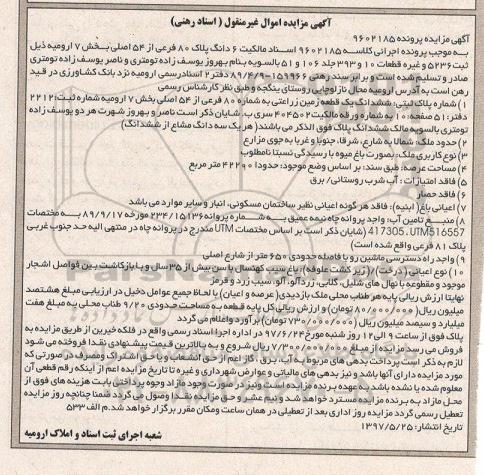 آگهی مزایده اموال غیرمنقول ( اسناد رهنی)
آگهی مزایده پرونده ۹۶۰۲۱۸۵
به موجب پرونده اجرائی کلاسه ۹۶۰۲۱۸۵ اسناد مالکیت ۶ دانگ پلاک ۸۰ فرعی از ۵۴ اصلی بخش ۷ ارومیه ذیل
ثبت ۵۲۳۶ و غیره قطعات ۱۰ و ۳۹۳ جلد ۱۰۶ و ۵۱ بالسویه بنام بهروز یوسف زاده تومتری و ناصر یوسف زاده تومتری
صادر و تسلیم شده است و برابر سند رهنی ۱۵۱۹۶۶-۸۹/۴/۹ دفتر ۲ اسنادرسمی ارومیه نزد بانک کشاورزی در قید
رهن است به آدرس ارومیه محال نازلوچای روستای ینگجه و طبق نظر کارشناس رسمی
۱) شماره پلاک ثبتی: ششدانگ یک قطعه زمین زراعتی به شماره ۸۰ فرعی از ۵۴ اصلی بخش ۷ ارومیه شماره ثبت: ۲۲۱۲
دفتر: ۵۱ صفحه: ۱۰ به شماره ورقه مالکیت ۴۰۴۵۰۲ سری ب. شایان ذکر است ناصر و بهروز شهرت هر دو یوسف زاده
تومتری بالسویه مالک ششدانگ پلاک فوق الذکر می باشند( هریک سه دانگ مشاع از ششدانگ)
۲) حدود ملک: شمالا به شارع، شرقا، جنوبا و غربا به جوی مزارع
۳) نوع کاربری ملک: بصورت باغ میوه با رسیدگی نسبتا نامطلوب
۴) مساحت عرصه: طبق سند: بر اساس وضع موجود: حدودا ۴۲۲۰۰ متر مربع
۵) فاقد امتیازات : آب شرب روستائی/ برق
۶) فاقد حصار
۷) اعیانی باغ( ابنیه): فاقد هر گونه اعیانی نظیر ساختمان مسکونی، انبار و سایر موارد می باشد
۸) منبع تامین آب: واجد پروانه چاه نیمه عمیق به شماره پروانه ۲۳۴/۱۵۱۳۶ مورخه ۸۹/۹/۱۷ به مختصات
UTM516557 ،417305 (شایان ذکر است بر اساس مختصات UTM مندرج در پروانه چاه در منتهی الیه حد جنوب غربی
پلاک ۸۱ فرعی واقع شده است)
۹) واجد راه دسترسی ماشین رو با فاصله حدودی ۶۵۰ متر از شارع اصلی
۱۰) نوع اعیانی (درخت) / (زیر کشت علوفه) باغ سیب کهنسال با سن بیش از ۳۵ سال و با بازکاشت بین فواصل اشجار
موجود و مقطوعه با نهال های شلیل، گلابی، زردآلو، آلو، سیب زرد و قرمز
نهایتا ارزش ریالی پایه هر طناب محلی ملک بازدیدی( عرصه و اعیان) با لحاظ جمیع عوامل دخیل در ارزیابی مبلغ هشتصد
میلیون ریال (۸۰/۰۰۰/۰۰۰ تومان) و ارزش ریالی کل پایه قطعه به مساحت حدودی ۹/۲۰ طناب محلی به مبلغ هفت
میلیارد و سیصد میلیون ریال (۷۳۰/۰۰۰/۰۰۰ تومان) برآورد و اعلام می گردد
پلاک فوق از ساعت ۹ الی ۱۲ روز شنبه مورخ ۹۷/۶/۲۴ در اداره اجرا اسناد رسمی واقع در فلکه خیرین از طریق مزایده به
فروش می رسد مزایده از مبلغ ۷/۳۰۰/۰۰۰/۰۰۰ ریال شروع و به بالاترین قیمت پیشنهادی نقدا فروخته می شود
لازم به ذکر است پرداخت بدهی های مربوط به آب، برق، گاز اعم از حق انشعاب و یا حق اشتراک و مصرف در صورتی که
مورد مزایده دارای آنها باشد و نیز بدهی های مالیاتی و عوارض شهرداری و غیره تا تاریخ مزایده اعم از اینکه رقم قطعی آن
معلوم شده یا نشده باشد به عهده برنده مزایده است ونیز در صورت وجود مازاد وجوه پرداختی بابت هزینه های فوق از
محل مازاد به برنده مزایده مسترد خواهد شد و نیم عشر و حق مزایده نقدا وصول می گردد ضمنا چنانچه روز مزایده
تعطیل رسمی گردد مزایده روز اداری بعد از تعطیلی در همان ساعت ومکان مقرر برگزار خواهد شد.م الف ۵۳۳
تاریخ انتشار: ۱۳۹۷/۵/۲۵
شعبه اجرای ثبت اسناد و املاک ارومیه